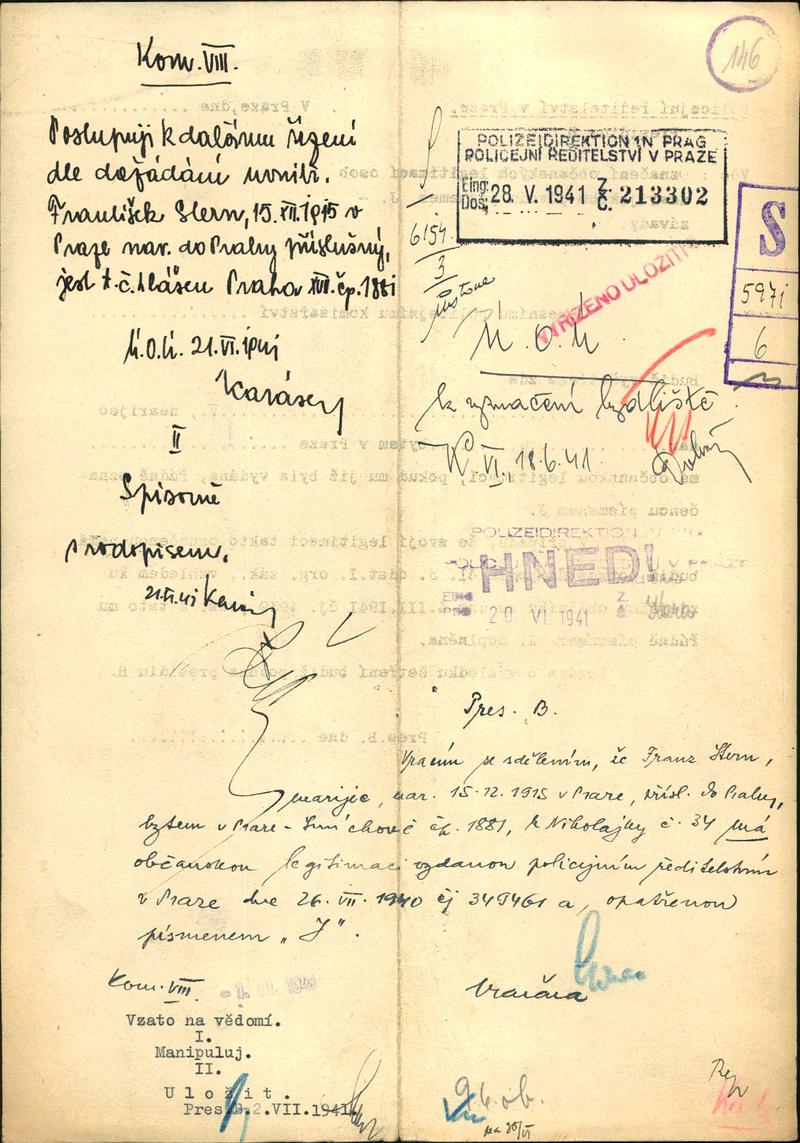 146
Kom. VIII.
Postupuji k dalšímu řízení
dle dožádání uvnitř.
František Stern, 15. XII. 1915 v
Praze nar. do Prahy příslušný,
jest t.č. hlášen Praha XVI. čp. 1881
M.O.Ú. 21. VI. 1941
Karásek
II
Spisovně
s rodopisem.
21. VI. 41
POLIZEIDIREKTION IN PRAG
POLICEJNÍ ŘEDITELSTVÍ V PRAZE
Eing.
Doš.
28. V. 1941
Z.
Č.
213302
S
6154
3
S
5971
6
VYŘÍZENO ULOŽITI
M. O. Ú
k vyznačení bydliště
K VI. 18.6.41
POLIZEIDIREKTION
HNED!
20 VI. 1941
Pres. B.
Vracím se sdělením, že Franz Stern,
nar. 15.12.1915 v Praze, přísl. do Prahy,
bytem v Praze - Smíchově čp. 1881, Nikolajky č. 34 má
občanskou legitimaci vydanou policejním ředitelstvím
v Praze dne 26. VII. 1940 čj 349461 a, opatřenou
písmenem „J".
Kom. VIII.
Vzato na vědomí.
I.
Manipuluj.
II.
Uložit.
Pres.B.2.VII.1941.